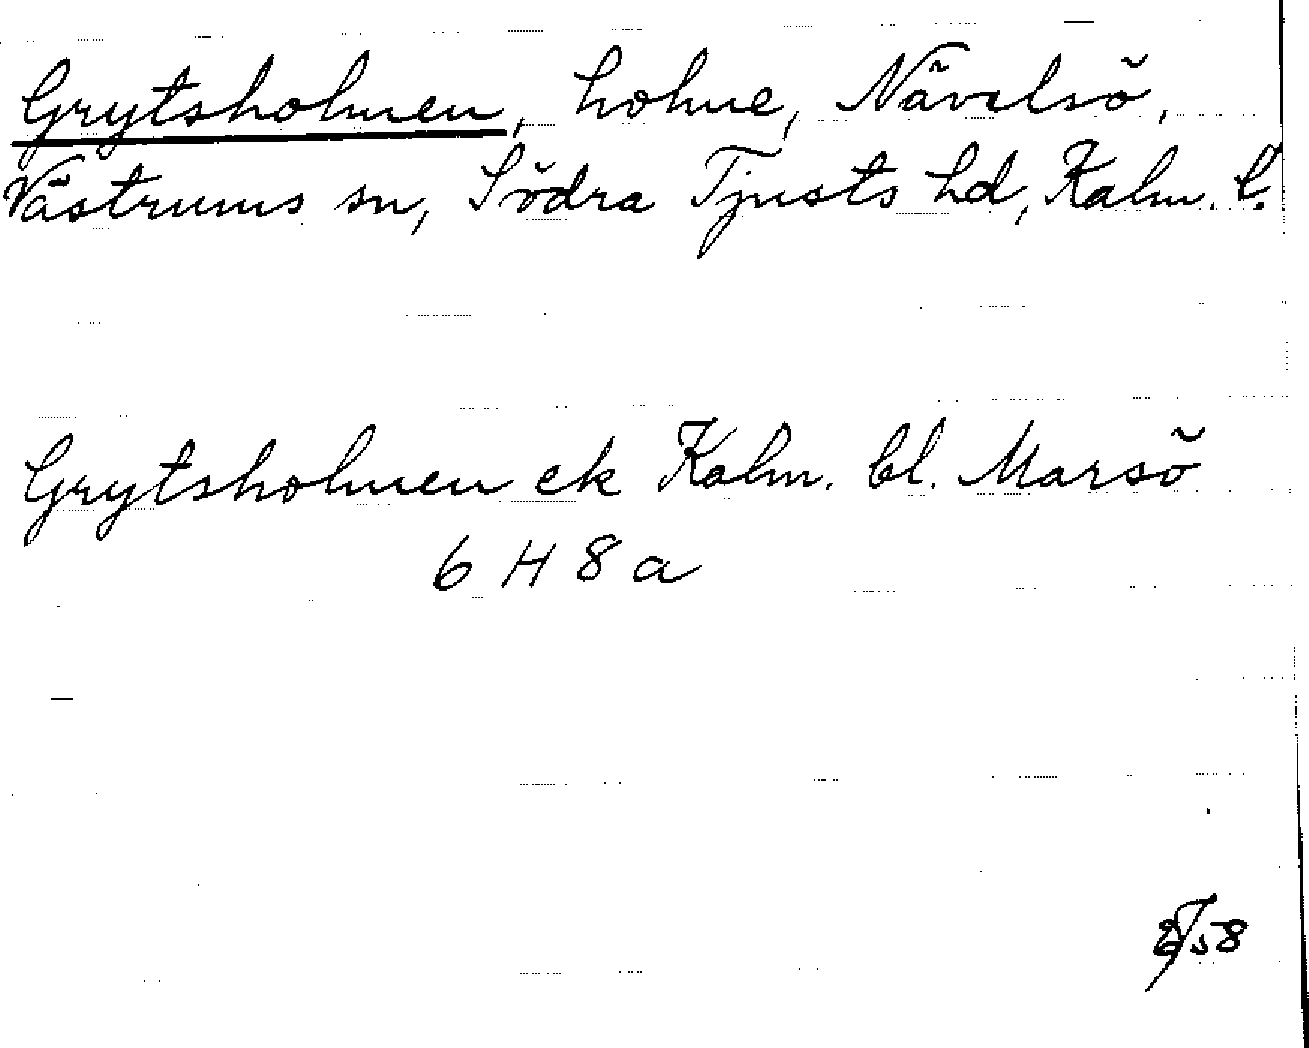 Grytsholmen, holme, Nävelsö,
Västrums sn, Södra Tjusts hd, Kalm. l.
Grytsholmen ek Kalm. bl. Marsö
6 H 8 a